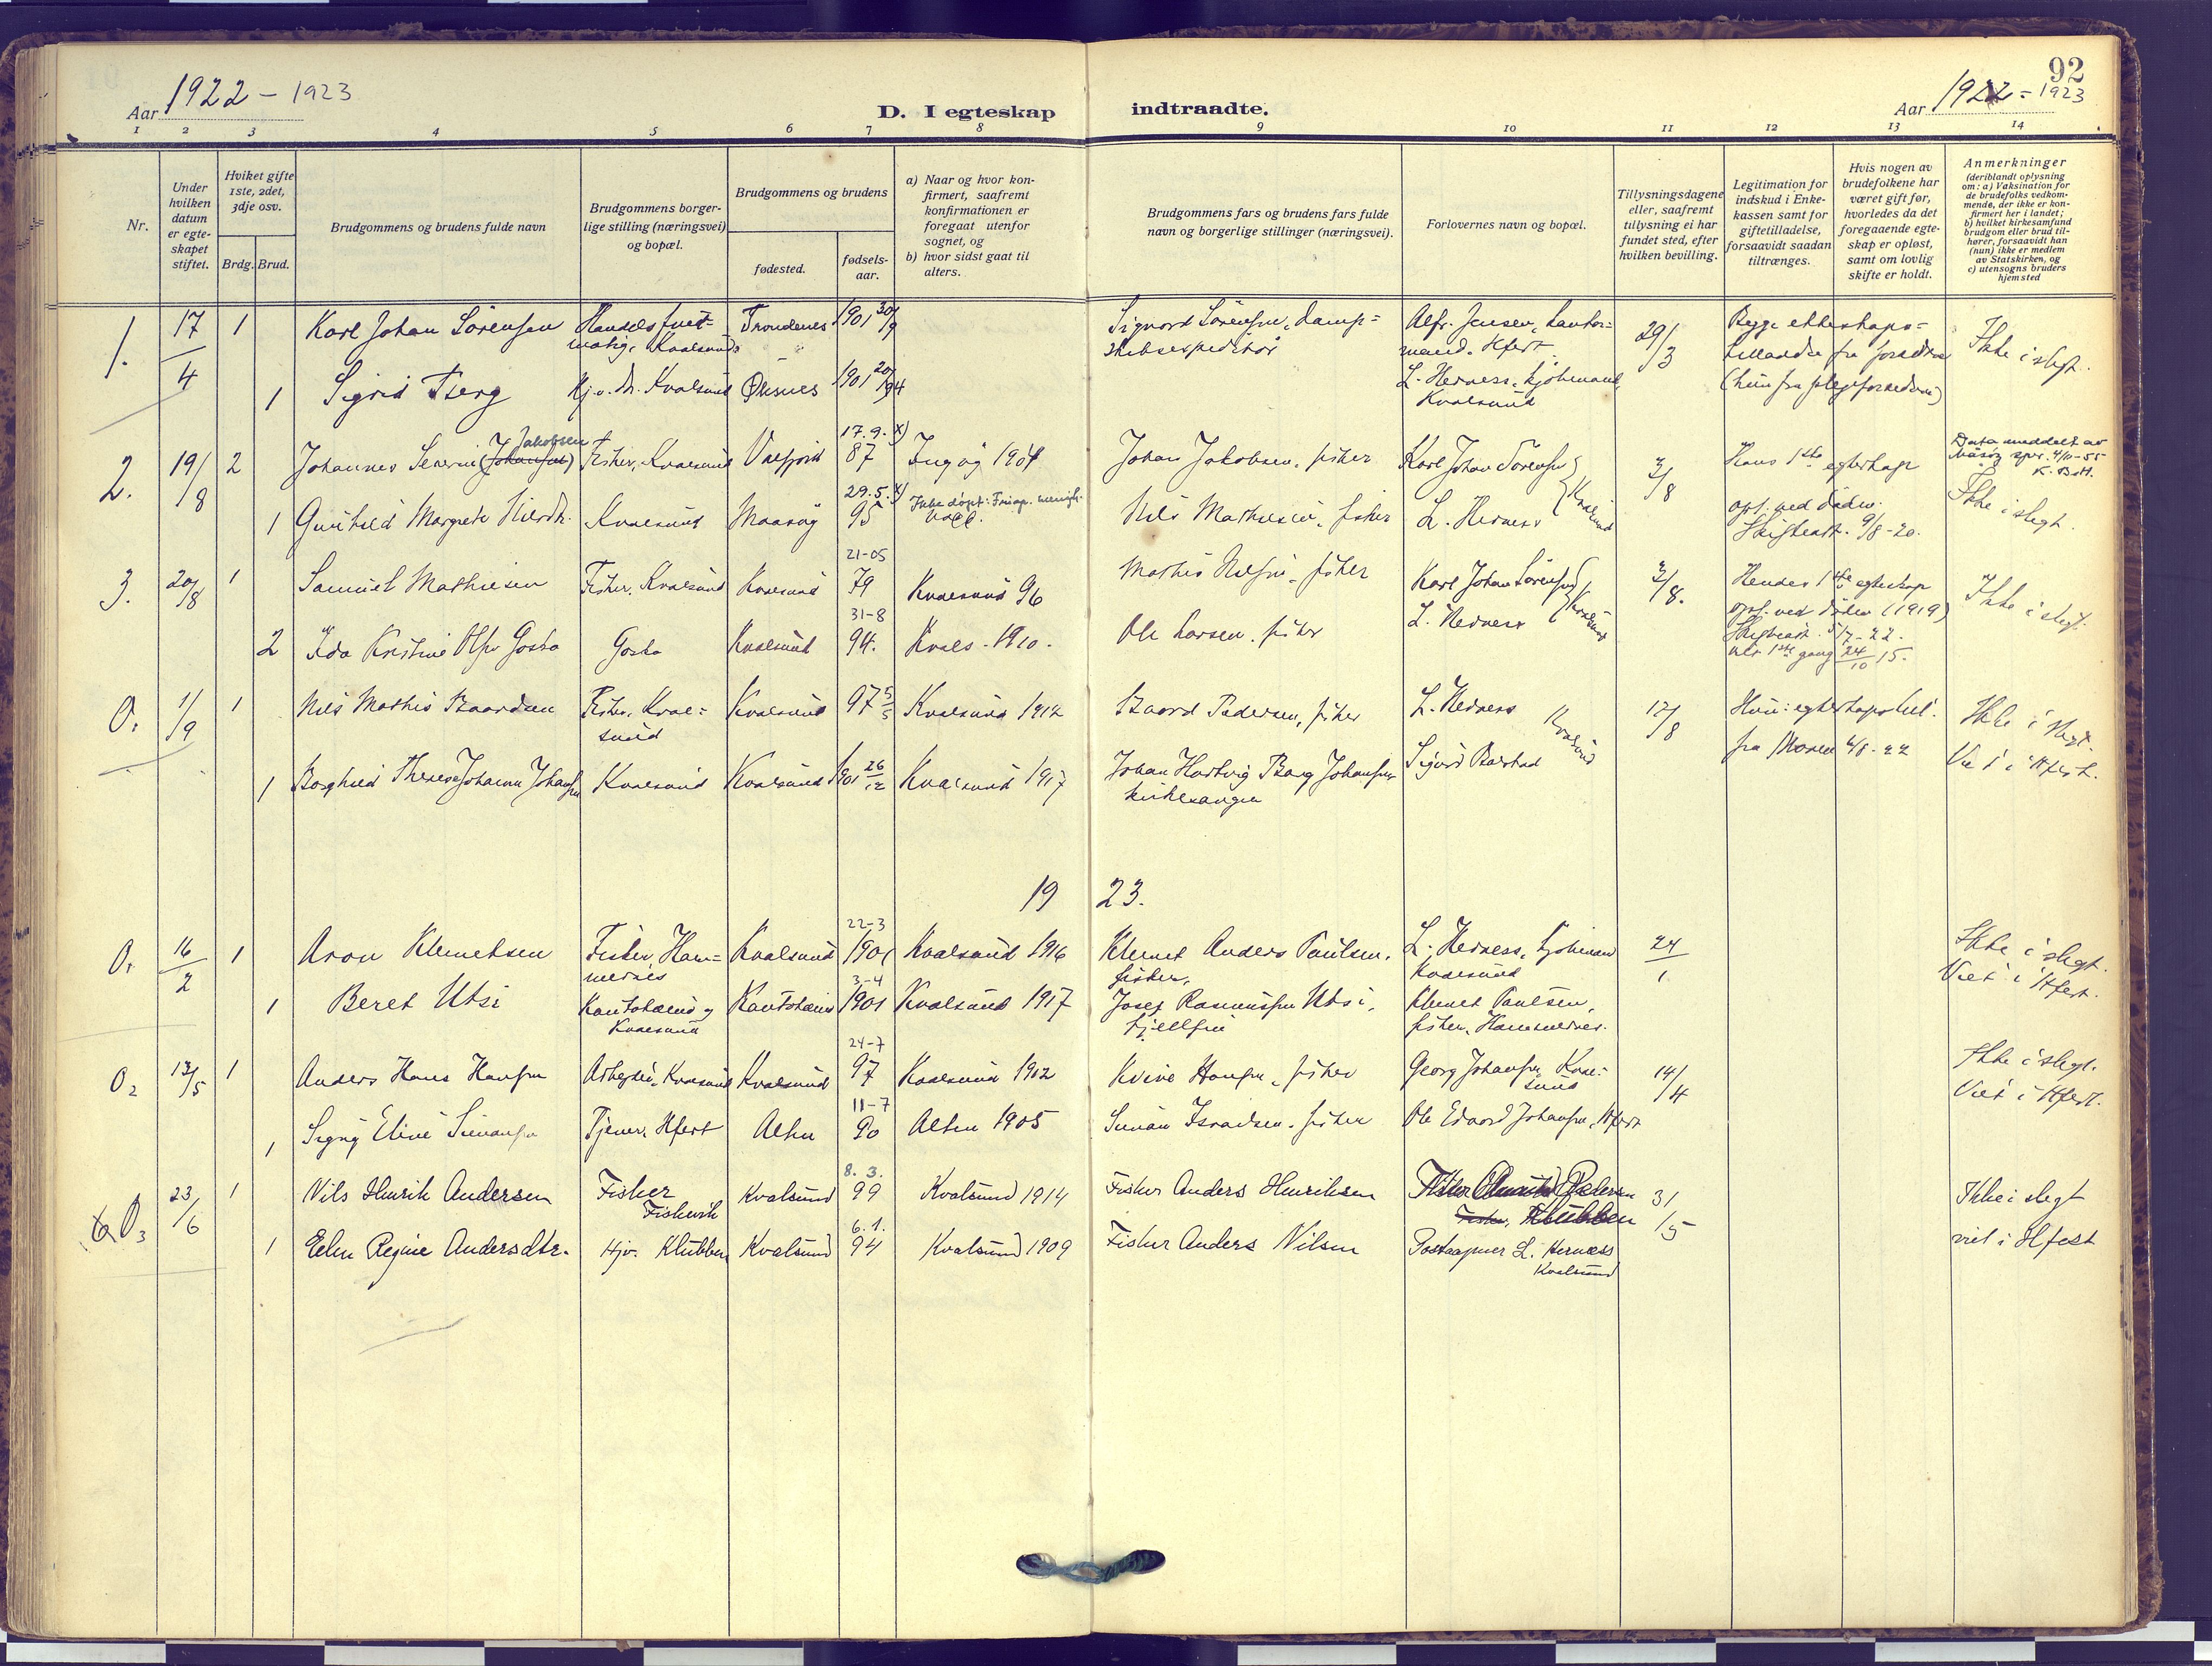 92
Aar 1922 - 1923
D. I egteskap indtraadte.
Aar 1922 - 1923
1 2 3 4 5 6 7 8 9 10 11 12 13 14
Nr.
Under hvilken datum er egte-skapet stiftet.
Hviket gifte 1ste, 2det, 3dje osv.
Brdg. Brud.
Brudgommens og brudens fulde navn
Brudgommens borger-lige stilling (næringsvei) og bopæl.
Brudgommens og brudens
fødested.
fødsels-aar.
a) Naar og hvor kon-firmert, saafremt konfirmationen er foregaat utenfor sognet, og
b) hvor sidst gaat til alters.
Brudgommens fars og brudens fars fulde navn og borgerlige stillinger (næringsvei).
Forlovernes navn og bopæl.
Tillysningsdagene eller, saafremt tillysning ei har fundet sted, efter hvilken bevilling.
Legitimation for indskud i Enke-kassen samt for giftetilladelse, forsaavidt saadan tiltrænges.
Hvis nogen av brudefolkene har været gift før, hvorledes da det foregaaende egte-skap er opløst, samt om lovlig skifte er holdt.
Anmerkninger (deriblandt oplysning om: a) Vaksination for de brudefolks vedkom-mende, der ikke er kon-firmert her i landet; b) hvilket kirkesamfund brudgom eller brud til-hører, forsaavidt han (hun) ikke er medlem av Statskirken, og c) utensogns bruders hjemsted
1. 17/4 1 Karl Johan Sørensen Trondenes 1901 30/9 Sigvord Sørensen, damp- Alfr. Jensen, 29/3 Ikke i slegt.
1 Sigrid Berg Kvalsund Øksnes 1901 L. Hernes, kjøbmand, Kvalsund
2. 19/8 2 Johannes Severin (Johansen) Jakobsen Fisker, Kvalsund 17.9. x) 87 Ingøy 1904 Johan Jakobsen, fisker Karl Johan Sørensen 3/8 Hans 1ste egteskap Data meddelt av Måsøy spr. 4/11-55
1 Gunhild Margrete Kvalsund Maasøy 29.5. x) 95 Nils Mathisen, fisker L. Hernes Kvalsund opl. ved døden. Skifteatt. 9/8-20. Ikke i slegt.
3. 20/8 1 Samuel Mathisen Fisker, Kvalsund Kvalsund 21-05 79 Kvalsund 96 Mathis Nilsen, fisker Karl Johan Sørensen 3/8. Hendes 1ste egteskap Ikke i slegt.
2 Ida Kristine Olsen Goska Goska Kvalsund 31-8 94. Kvals. 1910. Ole Larsen, fisker L. Hernes Kvalsund opl. ved døden (1919) Skifteatt. 5/7-22. 1ste gang 24/10 15.
0. 1/9 1 Nils Mathis Baardsen Fisker, Kvalsund Kvalsund 97 5/5 Kvalsund 1912 Baard Pedersen, fisker L. Hernes Kvalsund 17/8 fra 4/8-22 Ikke i slegt.
1 Borghild Therese Johanna Johansen Kvalsund Kvalsund 1901 26/12 Kvalsund 1917 Johan Hartvig Berg Johansen kirkesanger Sigurd Barstad Viet i Hfest.
19 23.
0 1 16/2 1 Aron Klemetsen Fisker, Hamnernes Kvalsund 22-3 1901 Kvalsund 1916 Klemet Anders Paulsen, fisker, L. Hernes, kjøbmand Kvalsund 24/1 Ikke i slegt.
1 Beret Utsi Kautokeino, Kvalsund Kautokeino 3-4 1901 Kvalsund 1917 Josef Rasmussen Utsi, fjellfin Klemet Paulsen, fisker, Hamnernes. Viet i Hfest.
0 2 13/5 1 Anders Hans Hansen Arbeider, Kvalsund Kvalsund 24-7 97 Kvalsund 1912 Hansen, fisker Georg Johansen, Kvalsund 14/4 Ikke i slegt.
1 Signy Eline Tjener, Hfest Alten 11-7 90 Alten 1905 Israelsen, fisker Ole Edvard Johansen, Hfest Viet i Hfest.
0 3 23/6 1 Nils Henrik Andersen Fisker Fiskevik Kvalsund 8. 3. 99 Kvalsund 1914 Fisker Anders Henriksen Pedersen Klubben 31/5 Ikke i slegt
1 Elen Regine Andersdtr. Hjv. Klubben Kvalsund 6. 1. 94 Kvalsund 1909 Fisker Anders Nilsen Postaapner L. Hernæss Kvalsund viet i Hfest